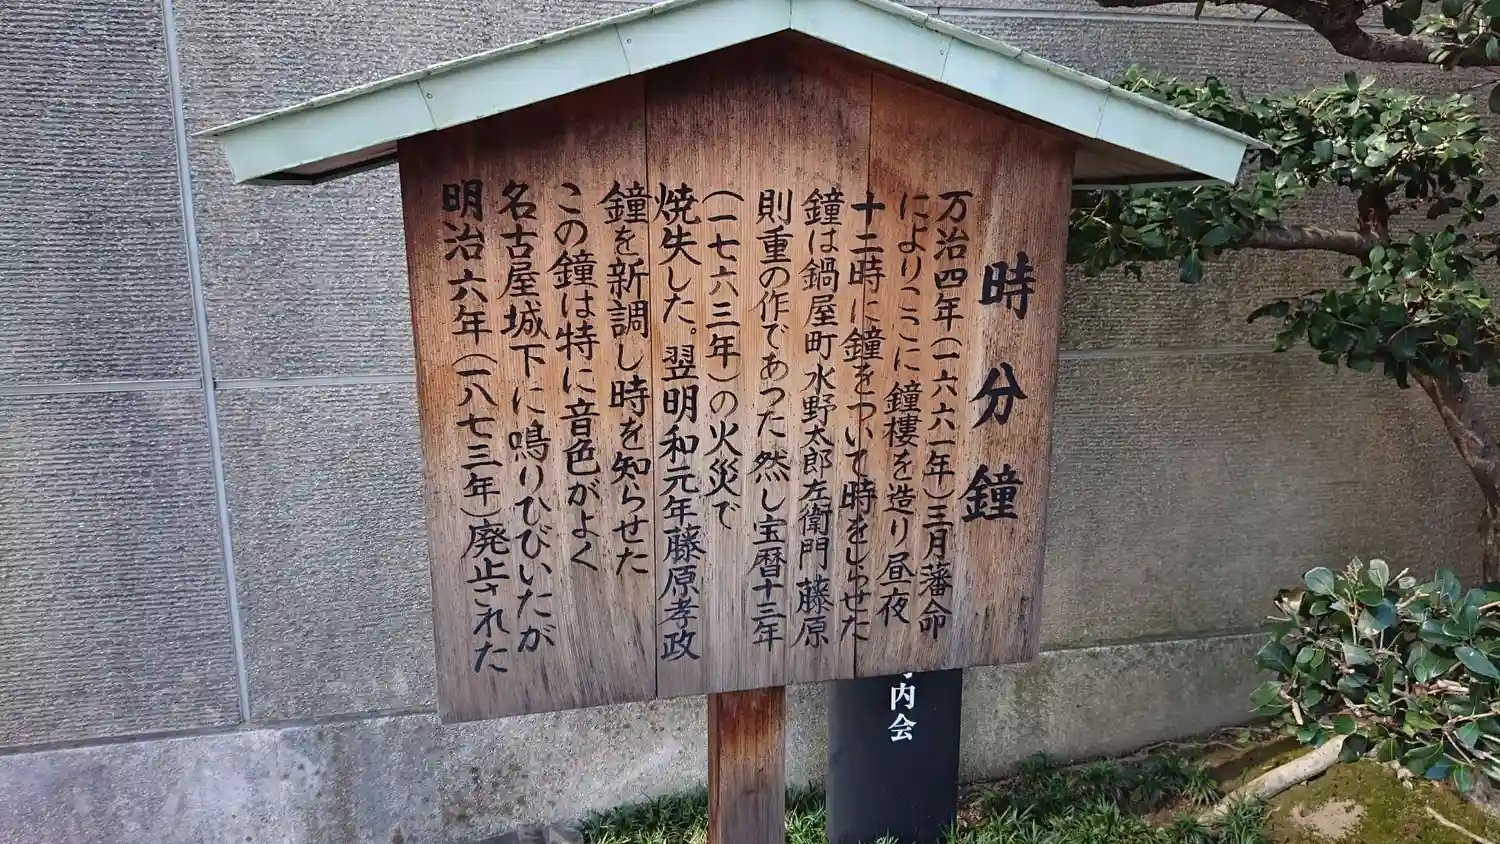 時分鐘
万治四年(一六六一年)三月藩命
によりここに鐘樓を造り昼夜
十二時に鐘をついて時をしらせた
鐘は鍋屋町水野太郎左衛門藤原
則重の作であった然し宝暦十三年
(一七六三年)の火災で
焼失した。翌明和元年藤原孝政
鐘を新調し時を知らせた
この鐘は特に音色がよく
名古屋城下に鳴りひびいたが
明治六年(一八七三年)廃止された
内会